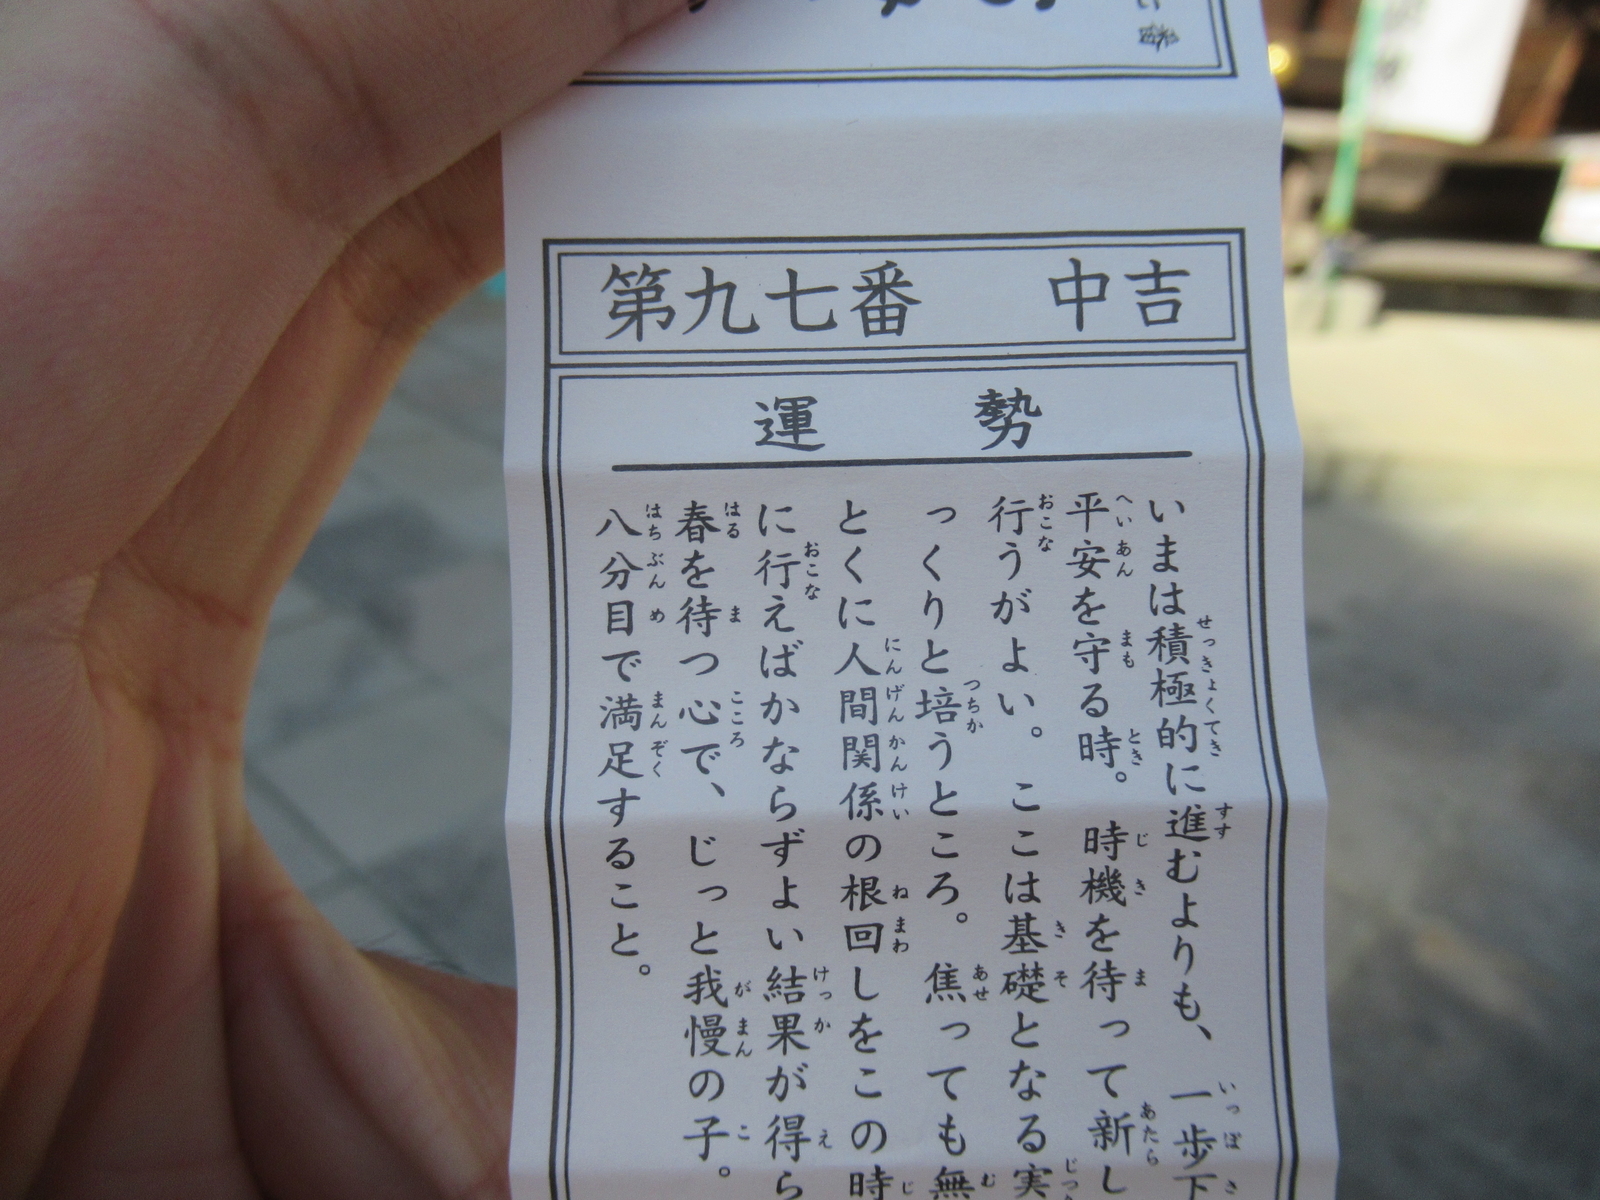 第九七番 中吉
運勢
いまは積極的に進むよりも、一歩下
平安を守る時。時機を待って新し
行うがよい。ここは基礎となる実
っくりと培うところ。焦っても無
とくに人間関係の根回しをこの時
に行えばかならずよい結果が得ら
春を待つ心で、じっと我慢の子。
八分目で満足すること。